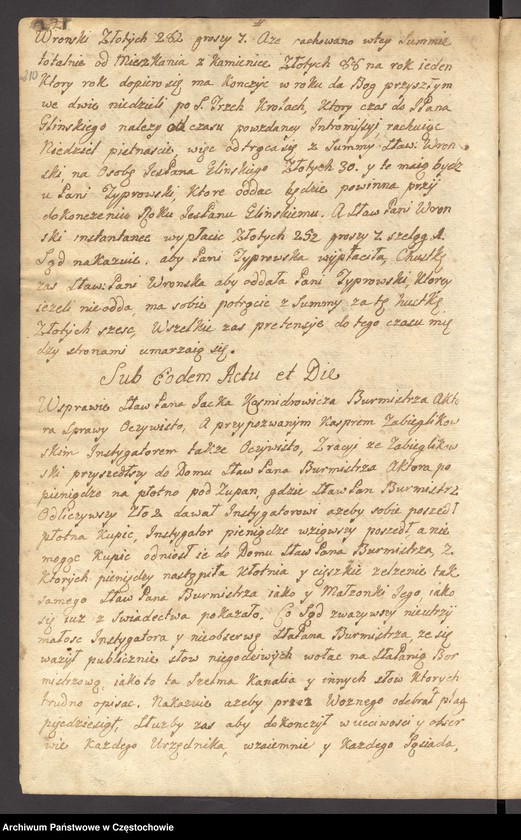 Wronski Złotych 282 groszy 7. Aże rachowano wtey Summie
totalnie od Mieszkania z Kamienice Złotych 86 na rok ieden
210
Ktory rok dopiero się ma Konczyć w roku da Bog przyszłym
we dwie niedzieli po S. Trzech Krolach, Ktory czas do JPana
Glinskiego nalezy od czasu powzdaney Intromissyi rachuiąc
Niedziel pietnascie, więc odtrąca się z Summy Sław: Wron
ski, na Osobę Jes Pana Glinskiego Złotych 30. y te maią bydz
u Pani Typrowski, Ktore oddac będzie powinna przy
dokonczeniu Roku Jes Panu Glinskiemu. A Sław Pani Wron
ski instantanee wypłacic Złotych 252 groszy 7 szeląg 1.
Sąd nakazuie, aby Pani Typrowska wypłaciła, Chustkę
zas Sław: Pani Wronska aby oddała Pani Typrowski, Ktorey
iezeli nie odda, ma sobie potrącic z Summy za tę hustkę
Złotych szesc, Wszelkie zas pretensye do tego czasu mię
dzy stronami umarzaią się.
Sub Eodem Actu et Die
Wsprawie Sław Pana Jacka Kazmidrowicza Burmistrza Akto
ra Sprawy Oczywisto, A przypozwanym Kasprem Zabieglikow
skim Instygatorem takze Oczywisto, Z racyi ze Zabieglikow
ski przyszedłszy do Domu Sław Pana Burmistrza Aktora po
pieniądze na płotno pod Zupan, gdzie Sław Pan Burmistrz
Odliczywszy Zło 2 dawał Instygatorowi azeby sobie poszedł
płotna Kupic, Instygator pieniądze wziąwszy poszedł, a nie
mogąc Kupic odniosł ie do Domu Sław Pana Burmistrza, z
Ktorych pieniędzy nastąpiła Kłotnia y cięszkie zelzenie tak
samego Sław Pana Burmistrza iako y Małzonki Jego, iako
się iuz z Swiadectwa pokazało. Co Sąd zwazywszy nieutrzy
małosc Instygatora y nieobserwę Sła Pana Burmistrza, ze się
wazył publicznie słow niegodziwych wołac na Sła Panią Bur
mistrzową, iako to ta Szelma Kanalia y innych słow Ktorych
trudno opisac. Nakazuie azeby przez Woznego odebrał plag
pięcdziesiąt, Słuzby zas aby dokonczył w ucciwosci y obser
wie Kazdego Urzędnika, wzaiemnie y Kazdego Sąsiada,
Archiwum Państwowe w Częstochowie